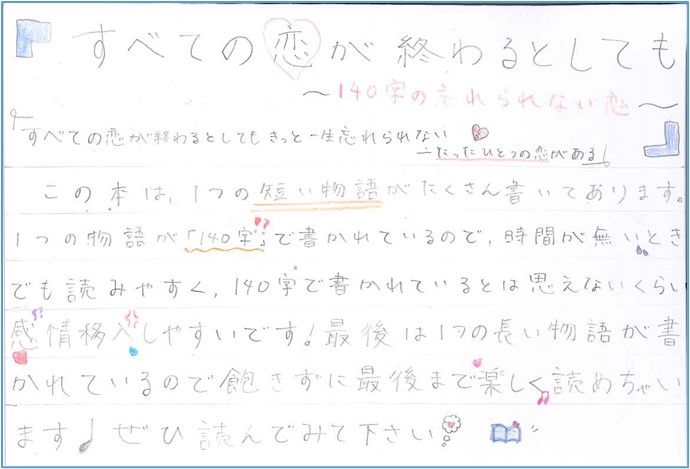 すべての恋が終わるとしても
〜140字の忘れられない恋〜
「すべての恋が終わるとしてもきっと一生忘れられない
―たったひとつの恋がある」
この本は、1つの短い物語がたくさん書いてあります。
1つの物語が「140字」!?で書かれているので、時間が無いとき
でも読みやすく、140字で書かれているとは思えないくらい
感情移入しやすいです!最後は1つの長い物語が書
かれているので飽きずに最後まで楽しく読めちゃい
ます♩ぜひ読んでみて下さい